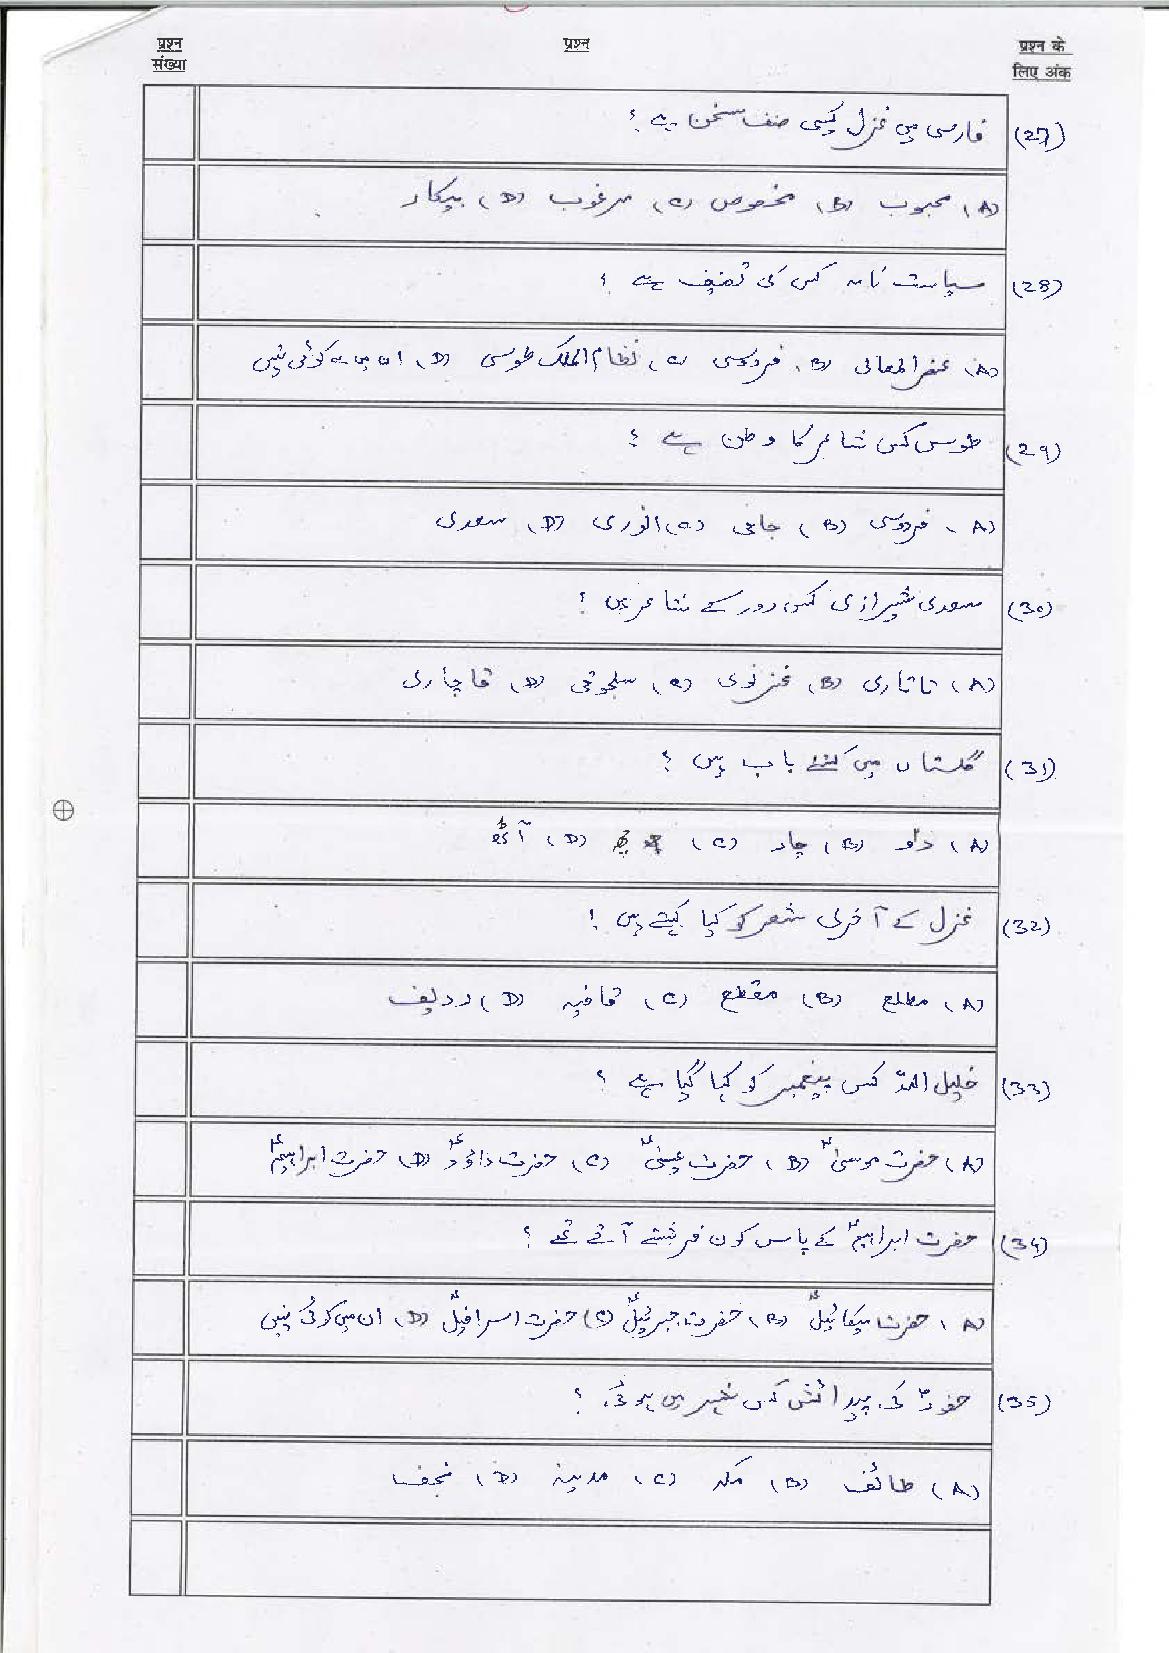 प्रश्न संख्या
प्रश्न
प्रश्न के लिए अंक
(27) فارسی میں غزل کیسی صنف سخن ہے ؟
(A) محبوب (B) مخصوص (C) مرغوب (D) بیکار
(28) سیاست نامہ کس کی تصنیف ہے ؟
(A) عنصر المعالی (B) فردوسی (C) نظام الملک طوسی (D) ان میں سے کوئی نہیں
(29) طوس کس شاعر کا وطن ہے ؟
(A) فردوسی (B) جامی (C) انوری (D) سعدی
(30) سعدی شیرازی کس دور کے شاعر ہیں ؟
(A) تاتاری (B) غزنوی (C) سلجوقی (D) قاچاری
(31) گلستاں میں کتنے باب ہیں ؟
(A) دو (B) چار (C) چھ (D) آٹھ
(32) غزل کے آخری شعر کو کیا کہتے ہیں ؟
(A) مطلع (B) مقطع (C) قافیہ (D) ردیف
(33) خلیل اللہ کس پیغمبر کو کہا گیا ہے ؟
(A) حضرت موسیٰؑ (B) حضرت عیسیٰؑ (C) حضرت داؤدؑ (D) حضرت ابراہیمؑ
(34) حضرت ابراہیمؑ کے پاس کون فرشتے آتے تھے ؟
(A) حضرت میکائیلؑ (B) حضرت جبرئیلؑ (C) حضرت اسرافیلؑ (D) ان میں کوئی نہیں
(35) حضورؐ کی پیدائش کس شہر میں ہوئی ؟
(A) طائف (B) مکہ (C) مدینہ (D) نجف